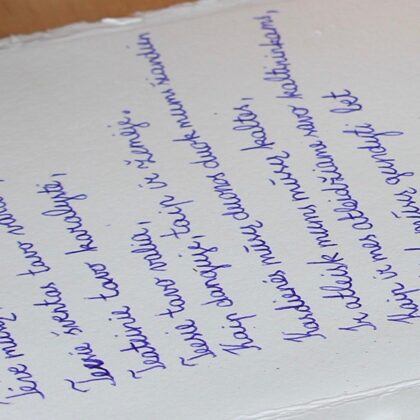 mūsų
Teesie šventas tavo
Teateinie tavo karalystė,
Teesie tavo valia,
Kaip danguje, taip ir žemėje.
Kasdienės mūsų duonos duok mums šiandien
Ir atleisk mums mūsų kaltes,
Kaip ir mes atleidžiame savo kaltininkams,
mūsų gundyti, bet